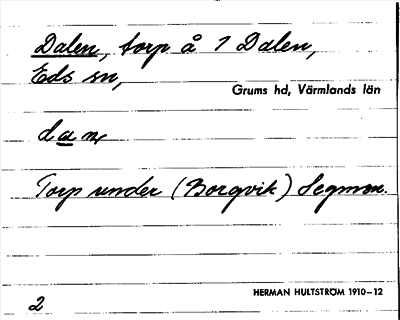 Dalen, torp å 1 Dalen,
Eds sn,
Grums hd, Värmlands län
Torp under (Borgvik) Segmon.
HERMAN HULTSTRÖM 1910–12
2